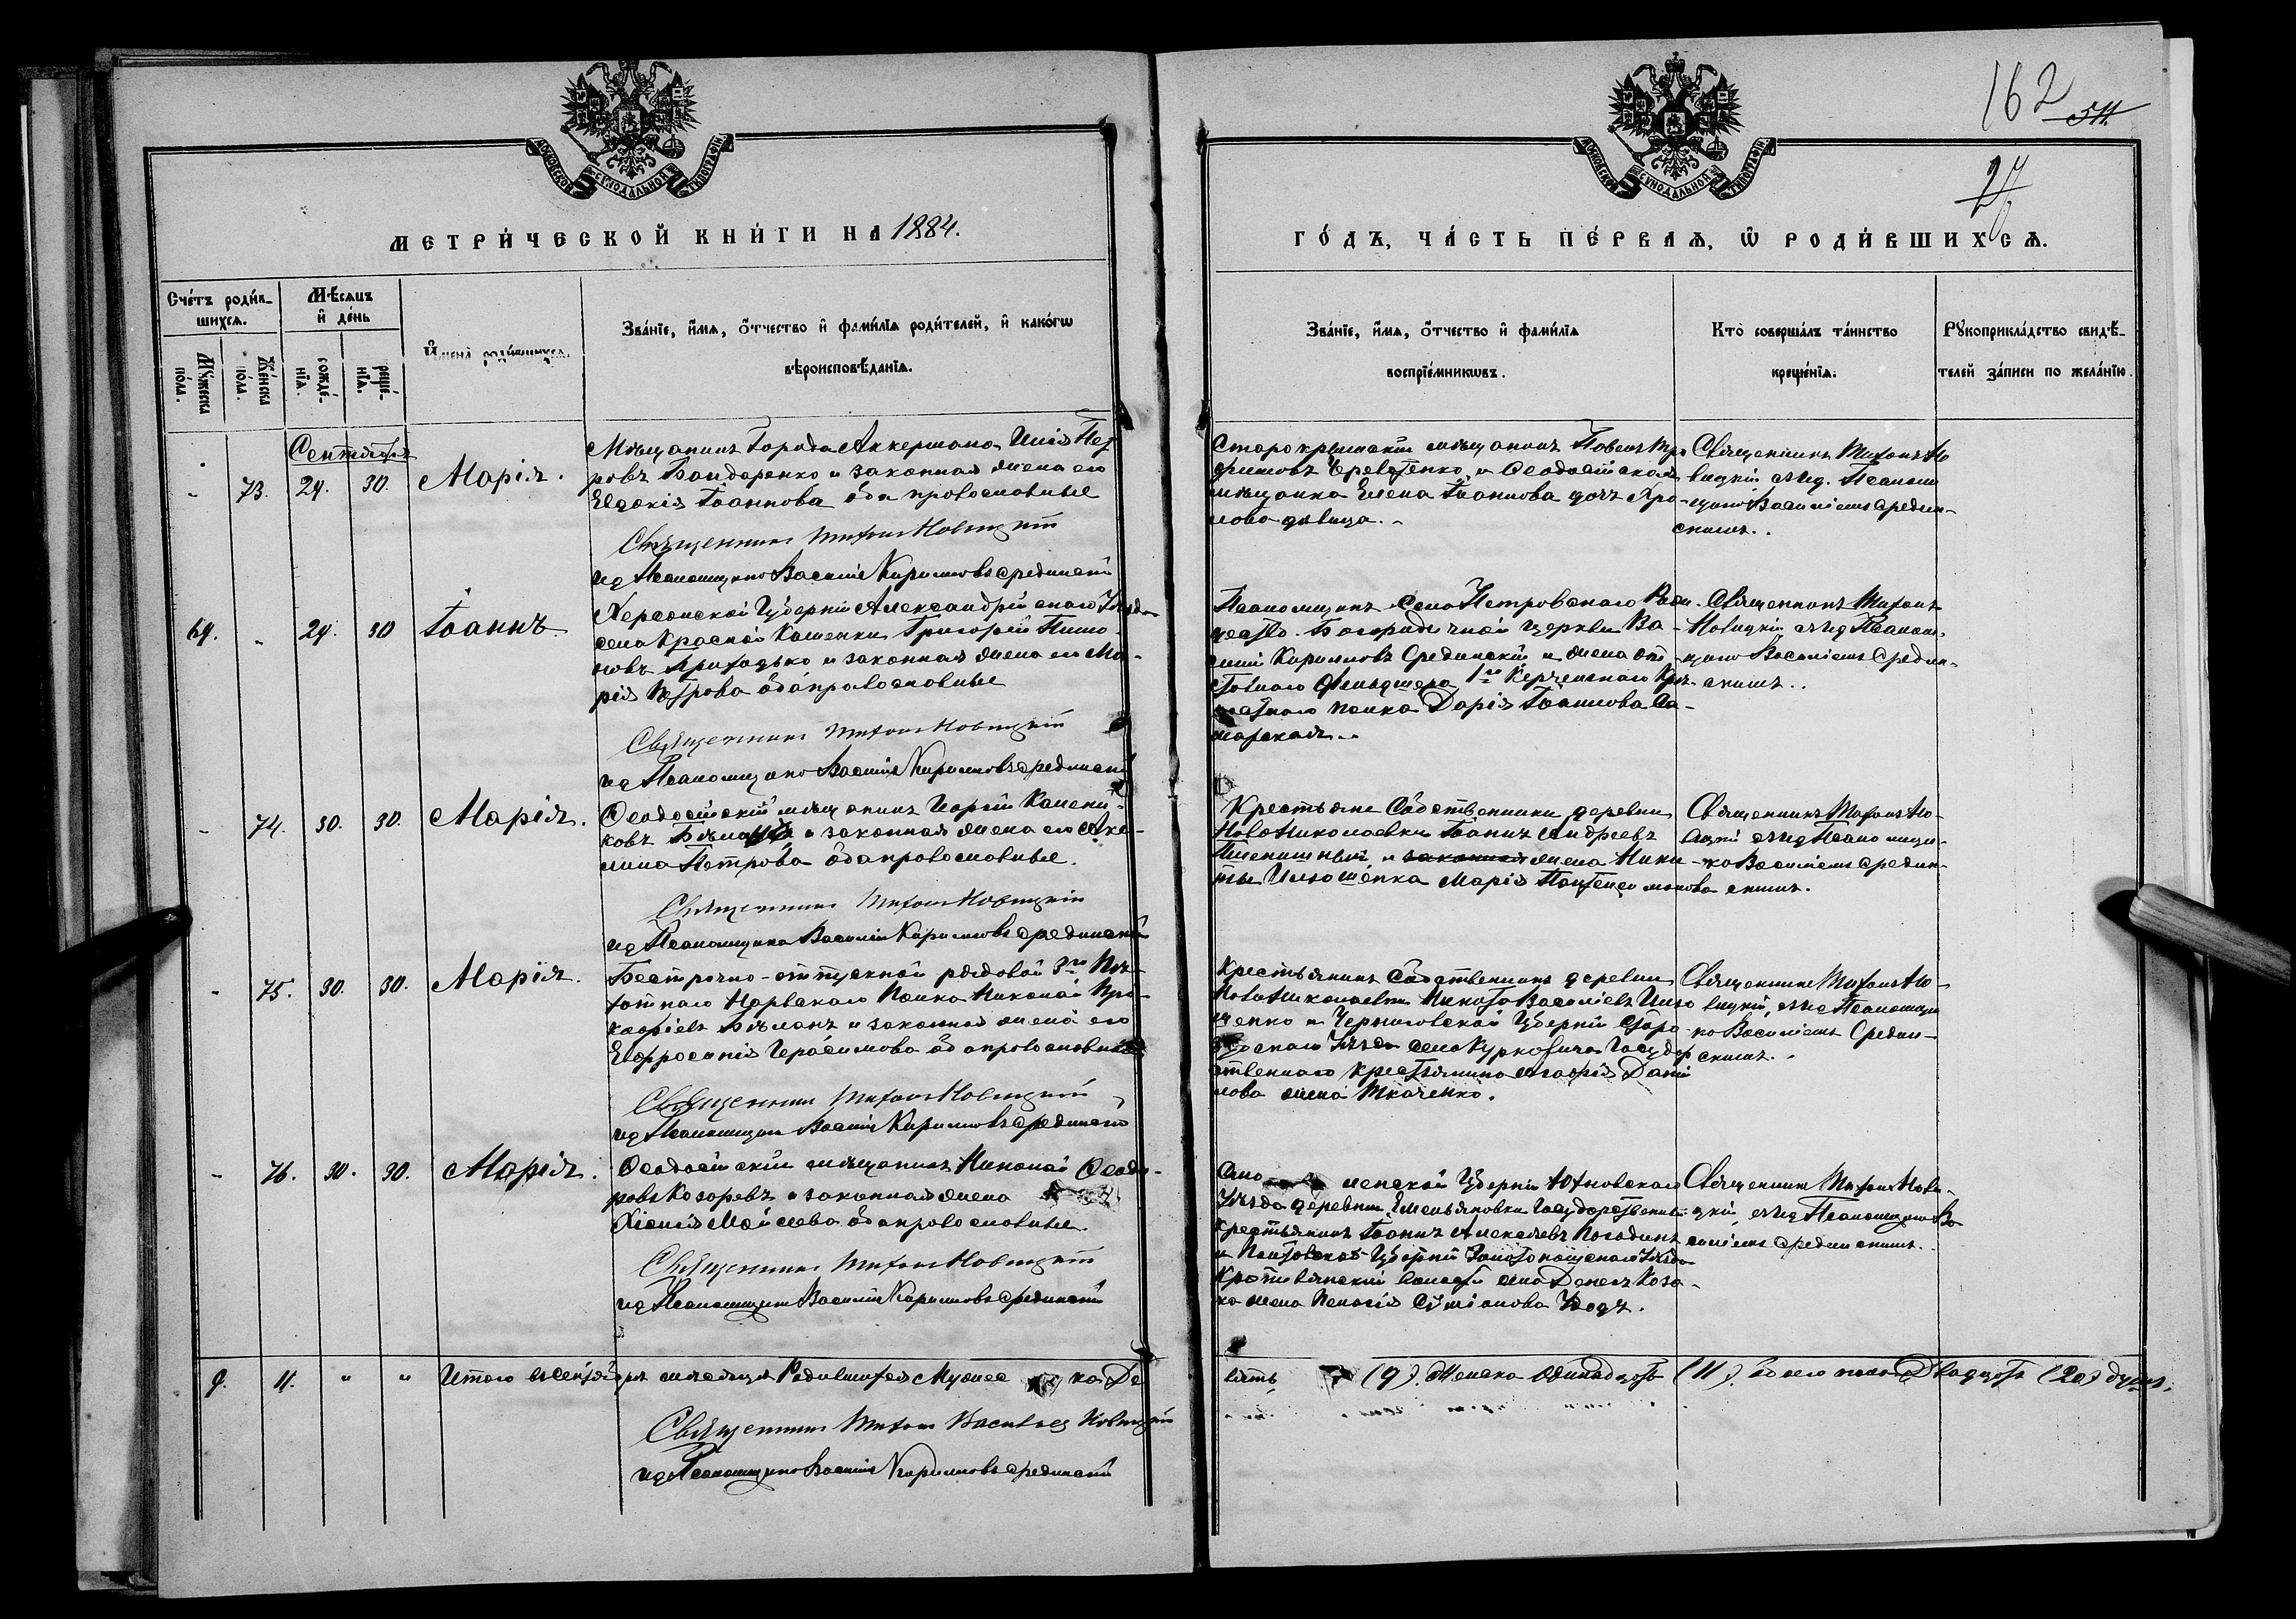 162 511.
27
МОСКОВСКОЙ СѴНОДАЛЬНОЙ ТИПОГРАФІИ
МОСКОВСКОЙ СѴНОДАЛЬНОЙ ТИПОГРАФІИ
МЕТРИ́ЧЕСКОЙ КНИ́ГИ НА 1884.
ГО́ДЪ, ЧА́СТЬ ПЕ́РВАѦ, Ѡ҆ РОДИ́ВШИХСѦ.
Счётъ роди́в-
шихсѧ.
Мѣсѧцъ
и҆ де́нь
Мꙋ́жеска
по́ла.
Же́нска
по́ла.
рожде́-
нїѧ.
креще́-
нїѧ.
И҆мена̀ роди́вшихсѧ.
Зва́нїе, и҆́мѧ, ѻ҆́тчество и҆ фами́лїѧ роди́телей, и҆ како́гѡ
вѣроисповѣ́данїѧ.
Зва́нїе, и҆́мѧ, ѻ҆́тчество и҆ фами́лїѧ
воспрїе́мникѡвъ.
Кто̀ соверша́лъ та́инство
креще́нїѧ.
Рꙋкоприкла́дство свидѣ́-
телей за́писи по жела́нїю.
Сентября
- 73. 29. 30. Марія.
Мѣщанинъ города Аккермана Пет
ровъ Бондаренко и законная жена его
Евдокія Іоаннова оба православные
Священникъ Тихонъ Новицкій
ид Псаломщика Василій Кириловъ Срединскій
Старокрымскій мѣщанинъ Павелъ Тро
фимовъ и Ѳеодосійская
мѣщанка Елена Іоаннова дочь
лова дѣвица.
Священникъ Тихонъ Но
вицкій съ ид. Псалом
щика Василіемъ Средин-
скимъ.
64. - 29. 30 Іоаннъ.
Херсонской Губерніи Александрійскаго Уѣзда
села Красной Каменки Григорій Тимо-
вовъ Приходько и законная жена его Ма-
рія Петрова оба православные
Священникъ Тихонъ Новицкій
ид Псаломщика Василій Кириловъ Срединскій
Псаломщикъ села Петровскаго Рож-
деств. Богородичной церкви Ва-
силій Кириловъ Срединскій и жена от-
ставнаго фельдшера 1го Керченскаго Крѣ-
постнаго полка Дарія Іоаннова Са-
марская.
Священникъ Тихонъ
Новицкій съ ид Псалом-
щика Василіемъ Средин-
скимъ.
- 74. 30. 30. Марія.
Ѳеодосійскій мѣщанинъ Георгій
ковъ и законная жена его Аки-
лина Петрова оба православные.
Священникъ Тихонъ Новицкій
ид Псаломщика Василій Кириловъ Срединскій
Крестьяне Собственники деревни
Новониколаевки Іоаннъ Андреевъ
Пшеничный и законная жена Ники-
ты Ильошенка Марія Пантелеимонова
Священникъ Тихонъ Но-
вицкій съ ид Псаломщи-
ка Василіемъ Средин-
скимъ.
- 75. 30. 30. Марія.
Безсрочно-отпускной рядовой 3го Пѣ-
хотнаго Нарвскаго Полка Николай Про-
кофіевъ Бѣланъ и законная жена его
Евфросинія Герасимова оба православные
Священникъ Тихонъ Новицкій
ид Псаломщика Василій Кириловъ Срединскій
Крестьянинъ Собственникъ деревни
Новониколаевки Никита Василіевъ Ильо
шенко и Черниговской Губерніи Старо-
дубскаго Уѣзда села Курковичъ Государ
ственнаго крестьянина Агафія Дани
лова жена Ткаченко.
Священникъ Тихонъ Но-
вицкій, съ ид Псаломщи
ка Василіемъ Средин-
скимъ.
- 76. 30. 30. Марія.
Ѳеодосійскій мѣщанинъ Николай Ѳеодо-
ровъ Козаревъ и законная жена
Ксенія Моисеева оба православные
Священникъ Тихонъ Новицкій
ид Псаломщика Василій Кириловъ Срединскій
Смо ленской Губерніи Юхновскаго
Уѣзда деревни Емельяновки Государственный
крестьянинъ Іоаннъ Алексѣевъ Погодинъ
и Полтавской Губерніи Золотоношскаго Уѣзда
Кропивянской волости села Денегъ Коза-
ка жена Пелагія
Священникъ Тихонъ Нови-
цкій, съ ид Псаломщика Ва
силіемъ Срединскимъ.
9. 11. " " Итого въ Сентябрѣ мѣсяцѣ Родившихся Мужес ка Де
вять (9). Женска Одинадцать (11). Обоего пола Двадцать (20) душъ.
Священникъ Тихонъ Васильев Новицкій
ид Псаломщика Василій Кириловъ Срединскій